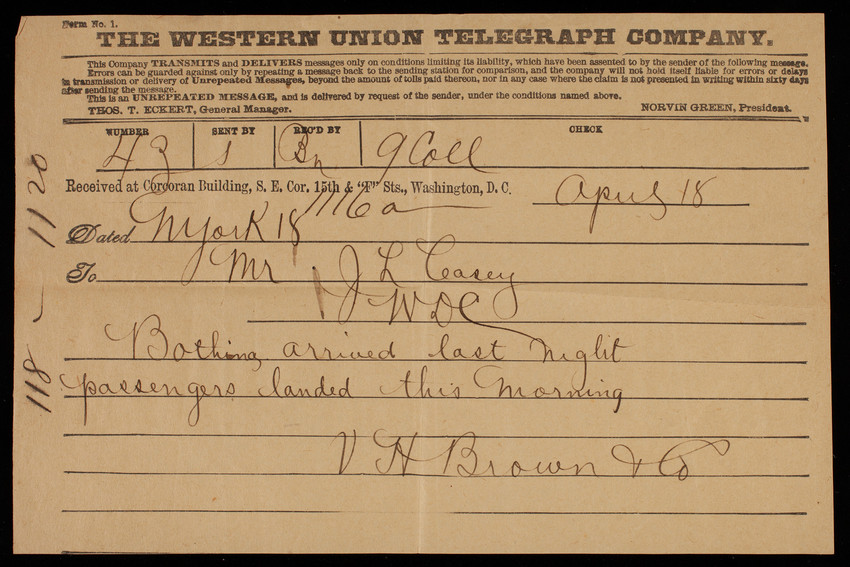 Form No. 1.
THE WESTERN UNION TELEGRAPH COMPANY.
This Company TRANSMITS and DELIVERS messages only on conditions limiting its liability, which have been assented to by the sender of the following message.
Errors can be guarded against only by repeating a message back to the sending station for comparison, and the company will not hold itself liable for errors or delays
in transmission or delivery of Unrepeated Messages, beyond the amount of tolls paid thereon, nor in any case where the claim is not presented in writing within sixty days
after sending the message.
This is an UNREPEATED MESSAGE, and is delivered by request of the sender, under the conditions named above.
THOS. T. ECKERT, General Manager. NORVIN GREEN, President.
NUMBER SENT BY REC'D BY CHECK
43 s Bn 9 Coll
Received at Corcoran Building, S. E. Cor. 15th & "F" Sts., Washington, D. C. April 18
1116 a
Dated NYork 18
To Mr J L Casey
WDC
Bothing arrived last night
passengers landed this morning
V H Brown & Co
118 — 1120